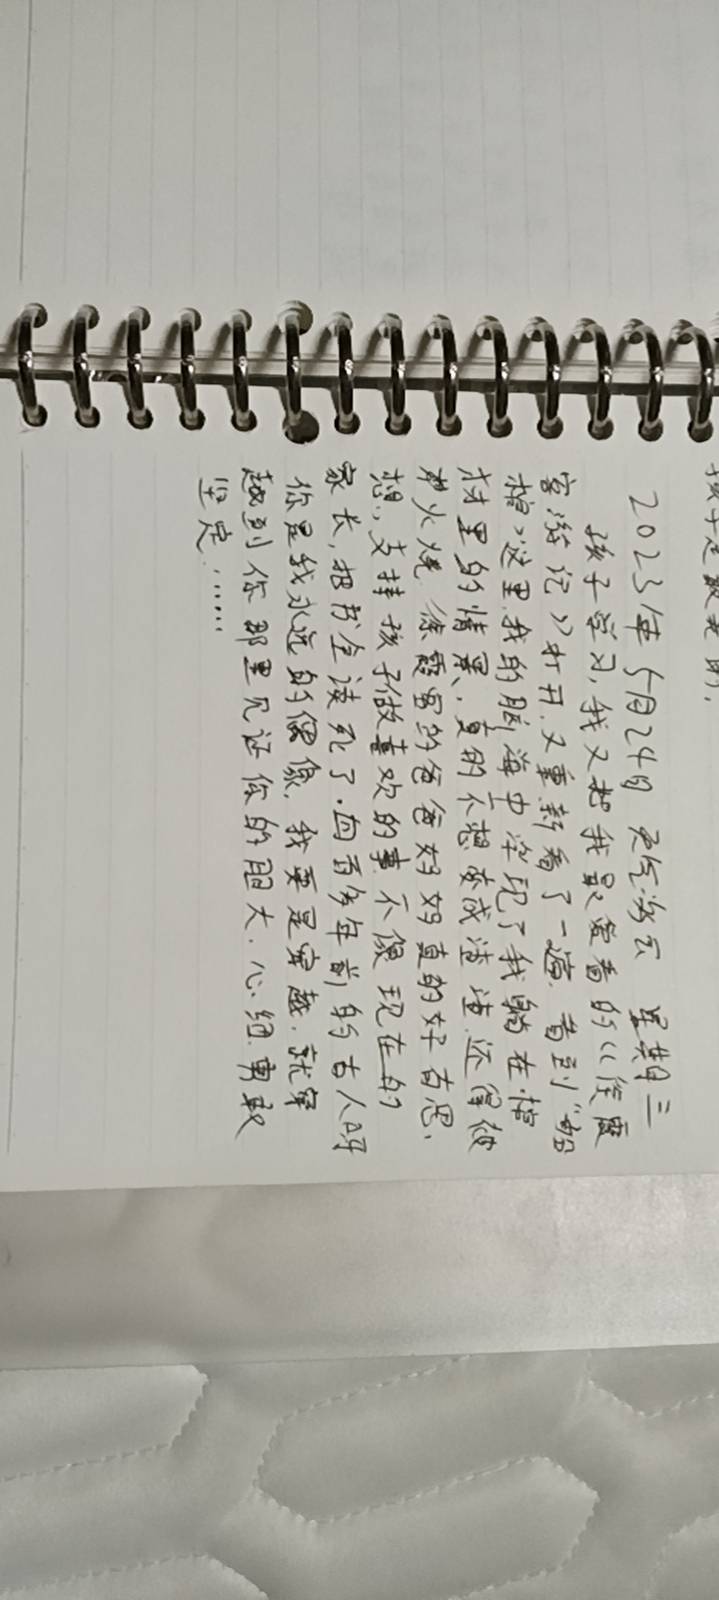 孩子是最棒的,
2023年5月24日 天气多云 星期三
孩子学习,我又把我最爱看的《《徐霞
客游记》》打开.又重新看了一遍.看到“船
棺”这里.我的脑海中浮现了我躺在棺
材里的情景、真的不想变成渣渣.还得被
火烧 徐霞客的爸爸好好真的好有思、
想.,支持孩子做喜欢的事.不像现在的
家长,把书全读死了.百多年前的古人呀
你是我永远的偶像.我要是穿越.就穿
越到你那里见证你的胆大.心细.勇敢
坚定......